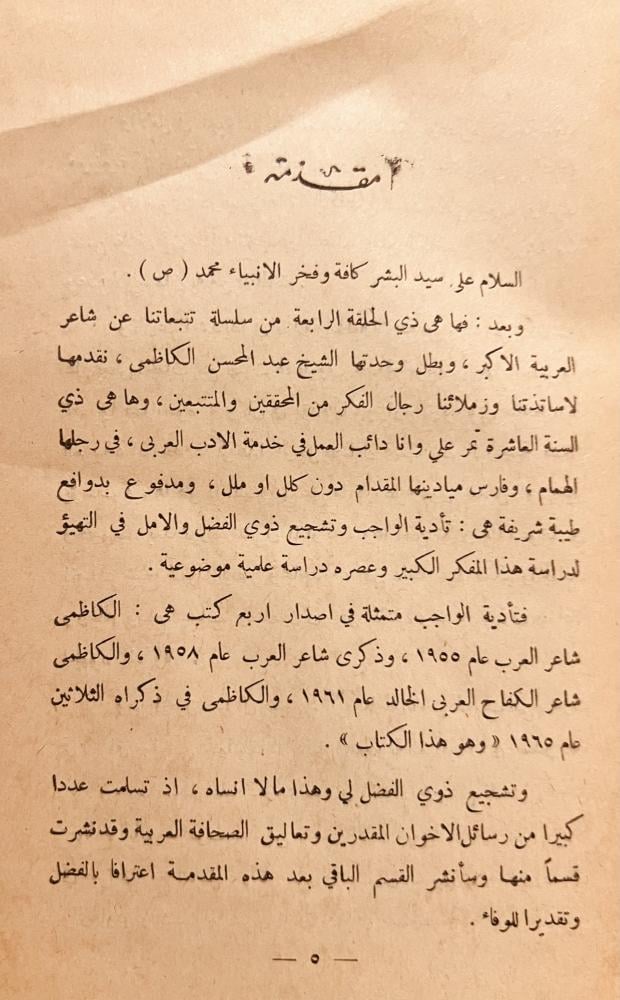 مقدمة
السلام على سيد البشر كافة وفخر الانبياء محمد ( ص ) .
وبعد : فها هى ذي الحلقة الرابعة من سلسلة تتبعاتنا عن شاعر
العربية الاكبر ، وبطل وحدتها الشيخ عبد المحسن الكاظمى ، نقدمها
لاساتذتنا وزملائنا رجال الفكر من المحققين والمتتبعين ، وها هى ذي
السنة العاشرة تمر علي وانا دائب العمل في خدمة الادب العربى ، في رجلها
الهمام ، وفارس ميادينها المقدام دون كلل او ملل ، ومدفوع بدوافع
طيبة شريفة هى : تأدية الواجب وتشجيع ذوي الفضل والامل في التهيؤ
لدراسة هذا المفكر الكبير وعصره دراسة علمية موضوعية .
فتأدية الواجب متمثلة في اصدار اربع كتب هى : الكاظمى
شاعر العرب عام ١٩٥٥ ، وذكرى شاعر العرب عام ١٩٥٨ ، والكاظمى
شاعر الكفاح العربى الخالد عام ١٩٦١ ، والكاظمى في ذكراه الثلاثين
عام ١٩٦٥ « وهو هذا الكتاب » .
وتشجيع ذوي الفضل لي وهذا مالا انساه ، اذ تسلمت عددا
كبيرا من رسائل الاخوان المقدرين وتعاليق الصحافة العربية وقد نشرت
قسماً منها وسأنشر القسم الباقي بعد هذه المقدمة اعترافا بالفضل
وتقديرا للوفاء .
— ٥ —